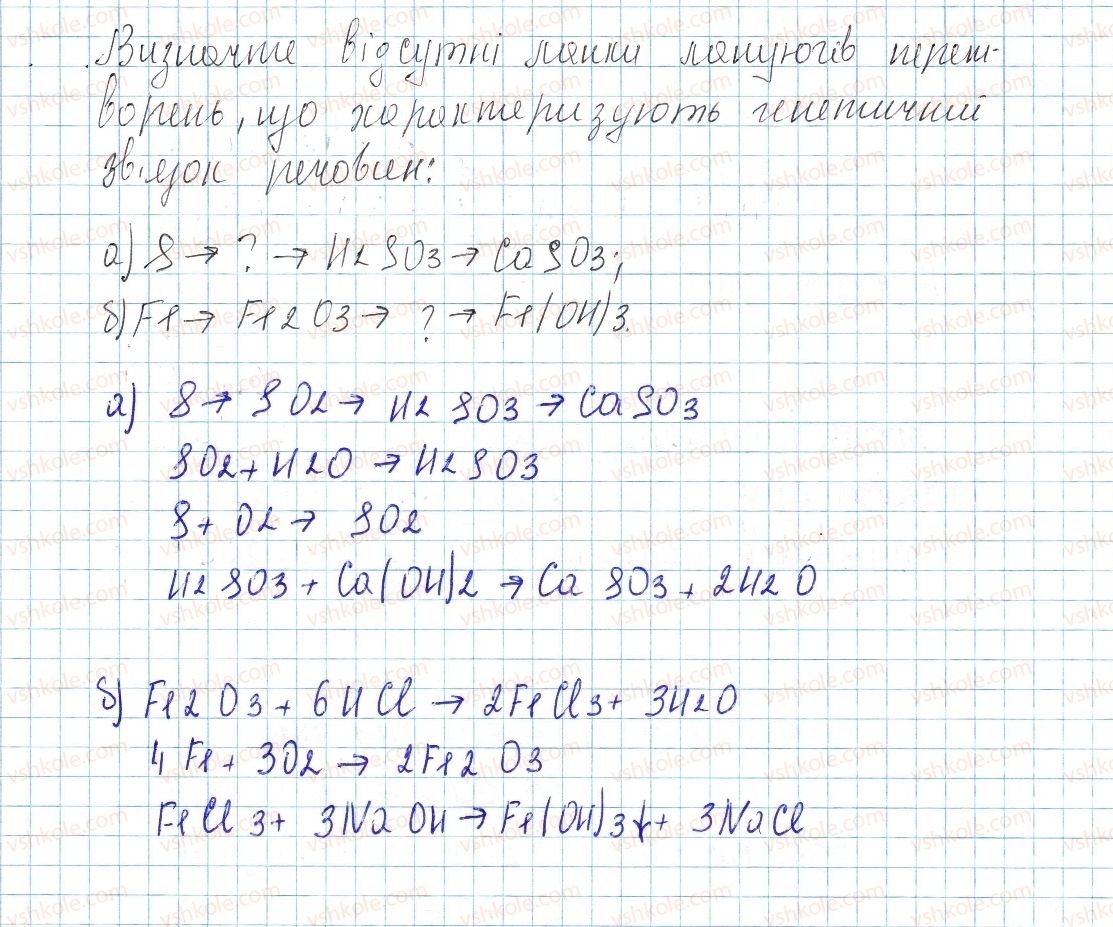 Визначте відсутні ланки ланцюгів перет-
ворень, що характеризують генетичний
зв'язок речовин:
а) S → ? → H2SO3 → CaSO3;
б) Fe → Fe2O3 → ? → Fe(OH)3.
а) S → SO2 → H2SO3 → CaSO3
SO2 + H2O → H2SO3
S + O2 → SO2
H2SO3 + Ca(OH)2 → CaSO3 + 2H2O
б) Fe2O3 + 6HCl → 2FeCl3 + 3H2O
4Fe + 3O2 → 2Fe2O3
FeCl3 + 3NaOH → Fe(OH)3↓ + 3NaCl
vshkole.com